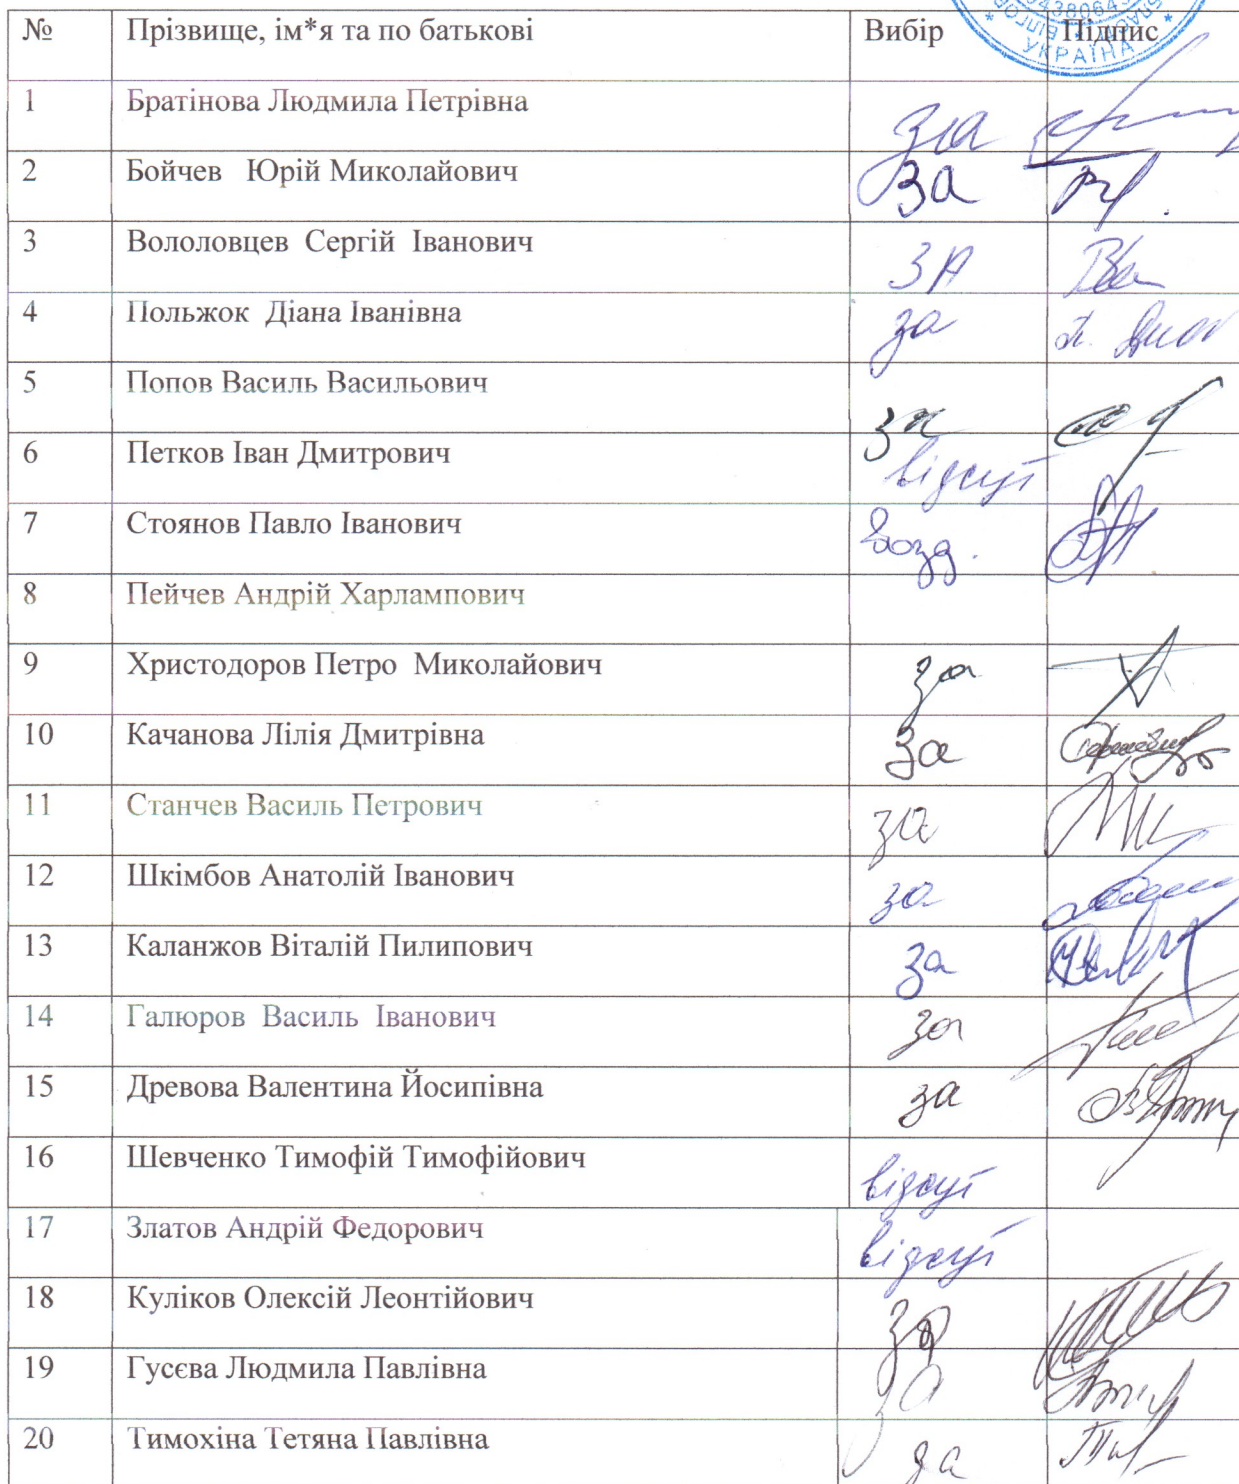 04380643
УКРАЇНА
№ Прізвище, ім*я та по батькові Вибір Підпис
1 Братінова Людмила Петрівна за
2 Бойчев Юрій Миколайович за
3 Вололовцев Сергій Іванович за
4 Польжок Діана Іванівна за
5 Попов Василь Васильович за
6 Петков Іван Дмитрович відсут
7 Стоянов Павло Іванович возд.
8 Пейчев Андрій Харлампович
9 Христодоров Петро Миколайович за
10 Качанова Лілія Дмитрівна за
11 Станчев Василь Петрович за
12 Шкімбов Анатолій Іванович за
13 Каланжов Віталій Пилипович за
14 Галюров Василь Іванович за
15 Древова Валентина Йосипівна за
16 Шевченко Тимофій Тимофійович відсут
17 Златов Андрій Федорович відсут
18 Куліков Олексій Леонтійович за
19 Гусєва Людмила Павлівна за
20 Тимохіна Тетяна Павлівна за